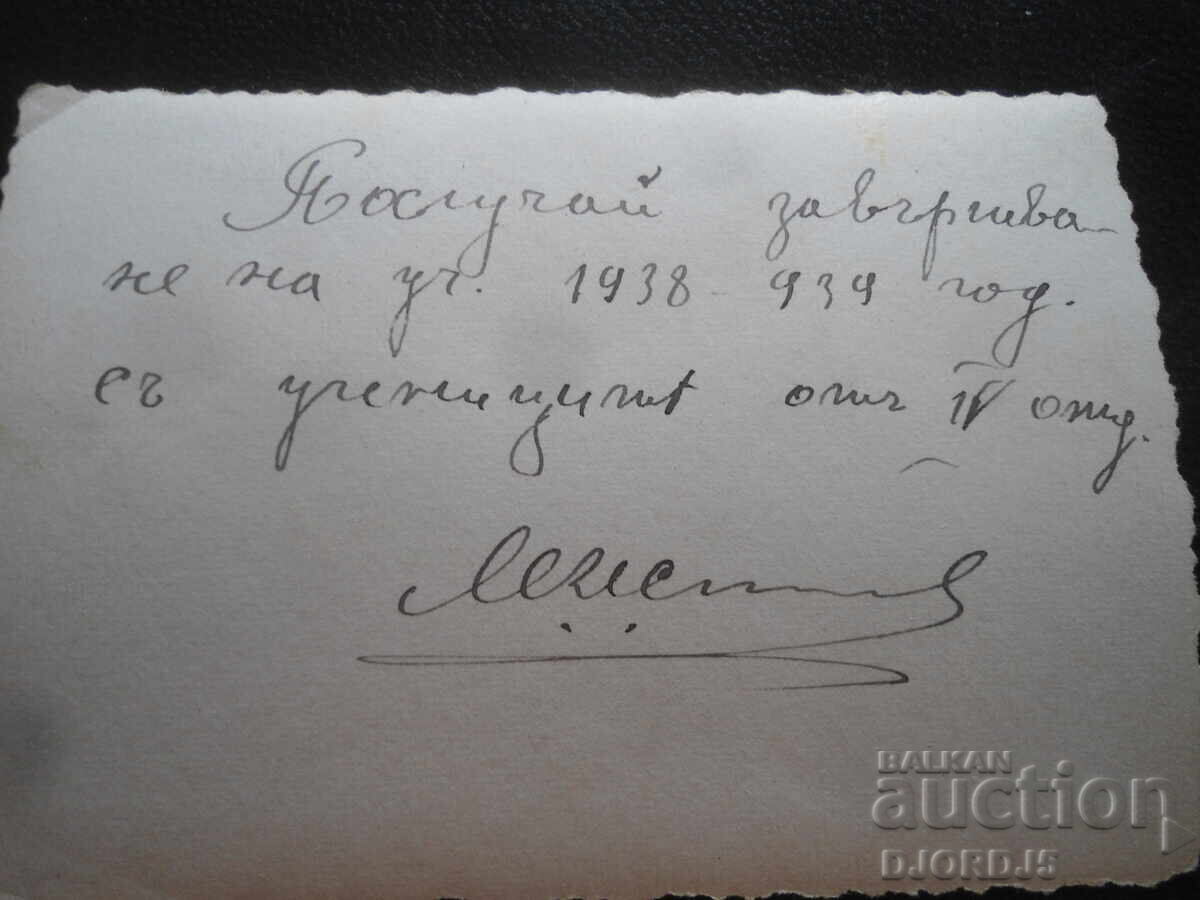 Послучай завършва-
не на уч. 1938-939 год.
съ ученицитѣ отъ IV отд.
BALKAN
auction
DJORDJ5